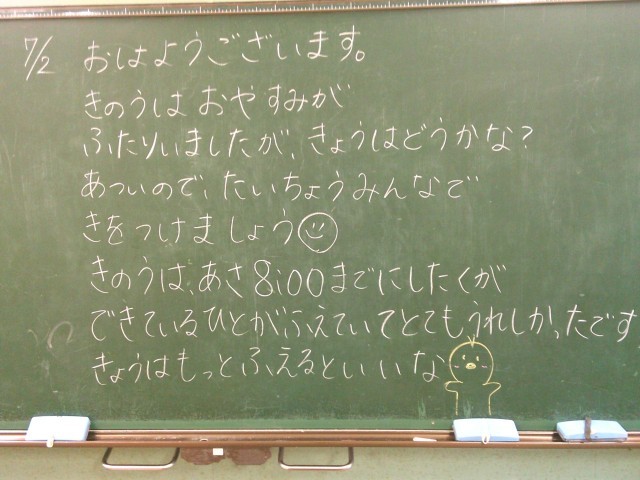 7/2 おはようございます。
きのうは おやすみが
ふたりいましたが、きょうはどうかな?
あついので、たいちょうみんなで
きをつけましょう
きのうは、あさ8:00までにしたくが
できているひとがふえていてとてもうれしかったです
きょうはもっとふえるといいな